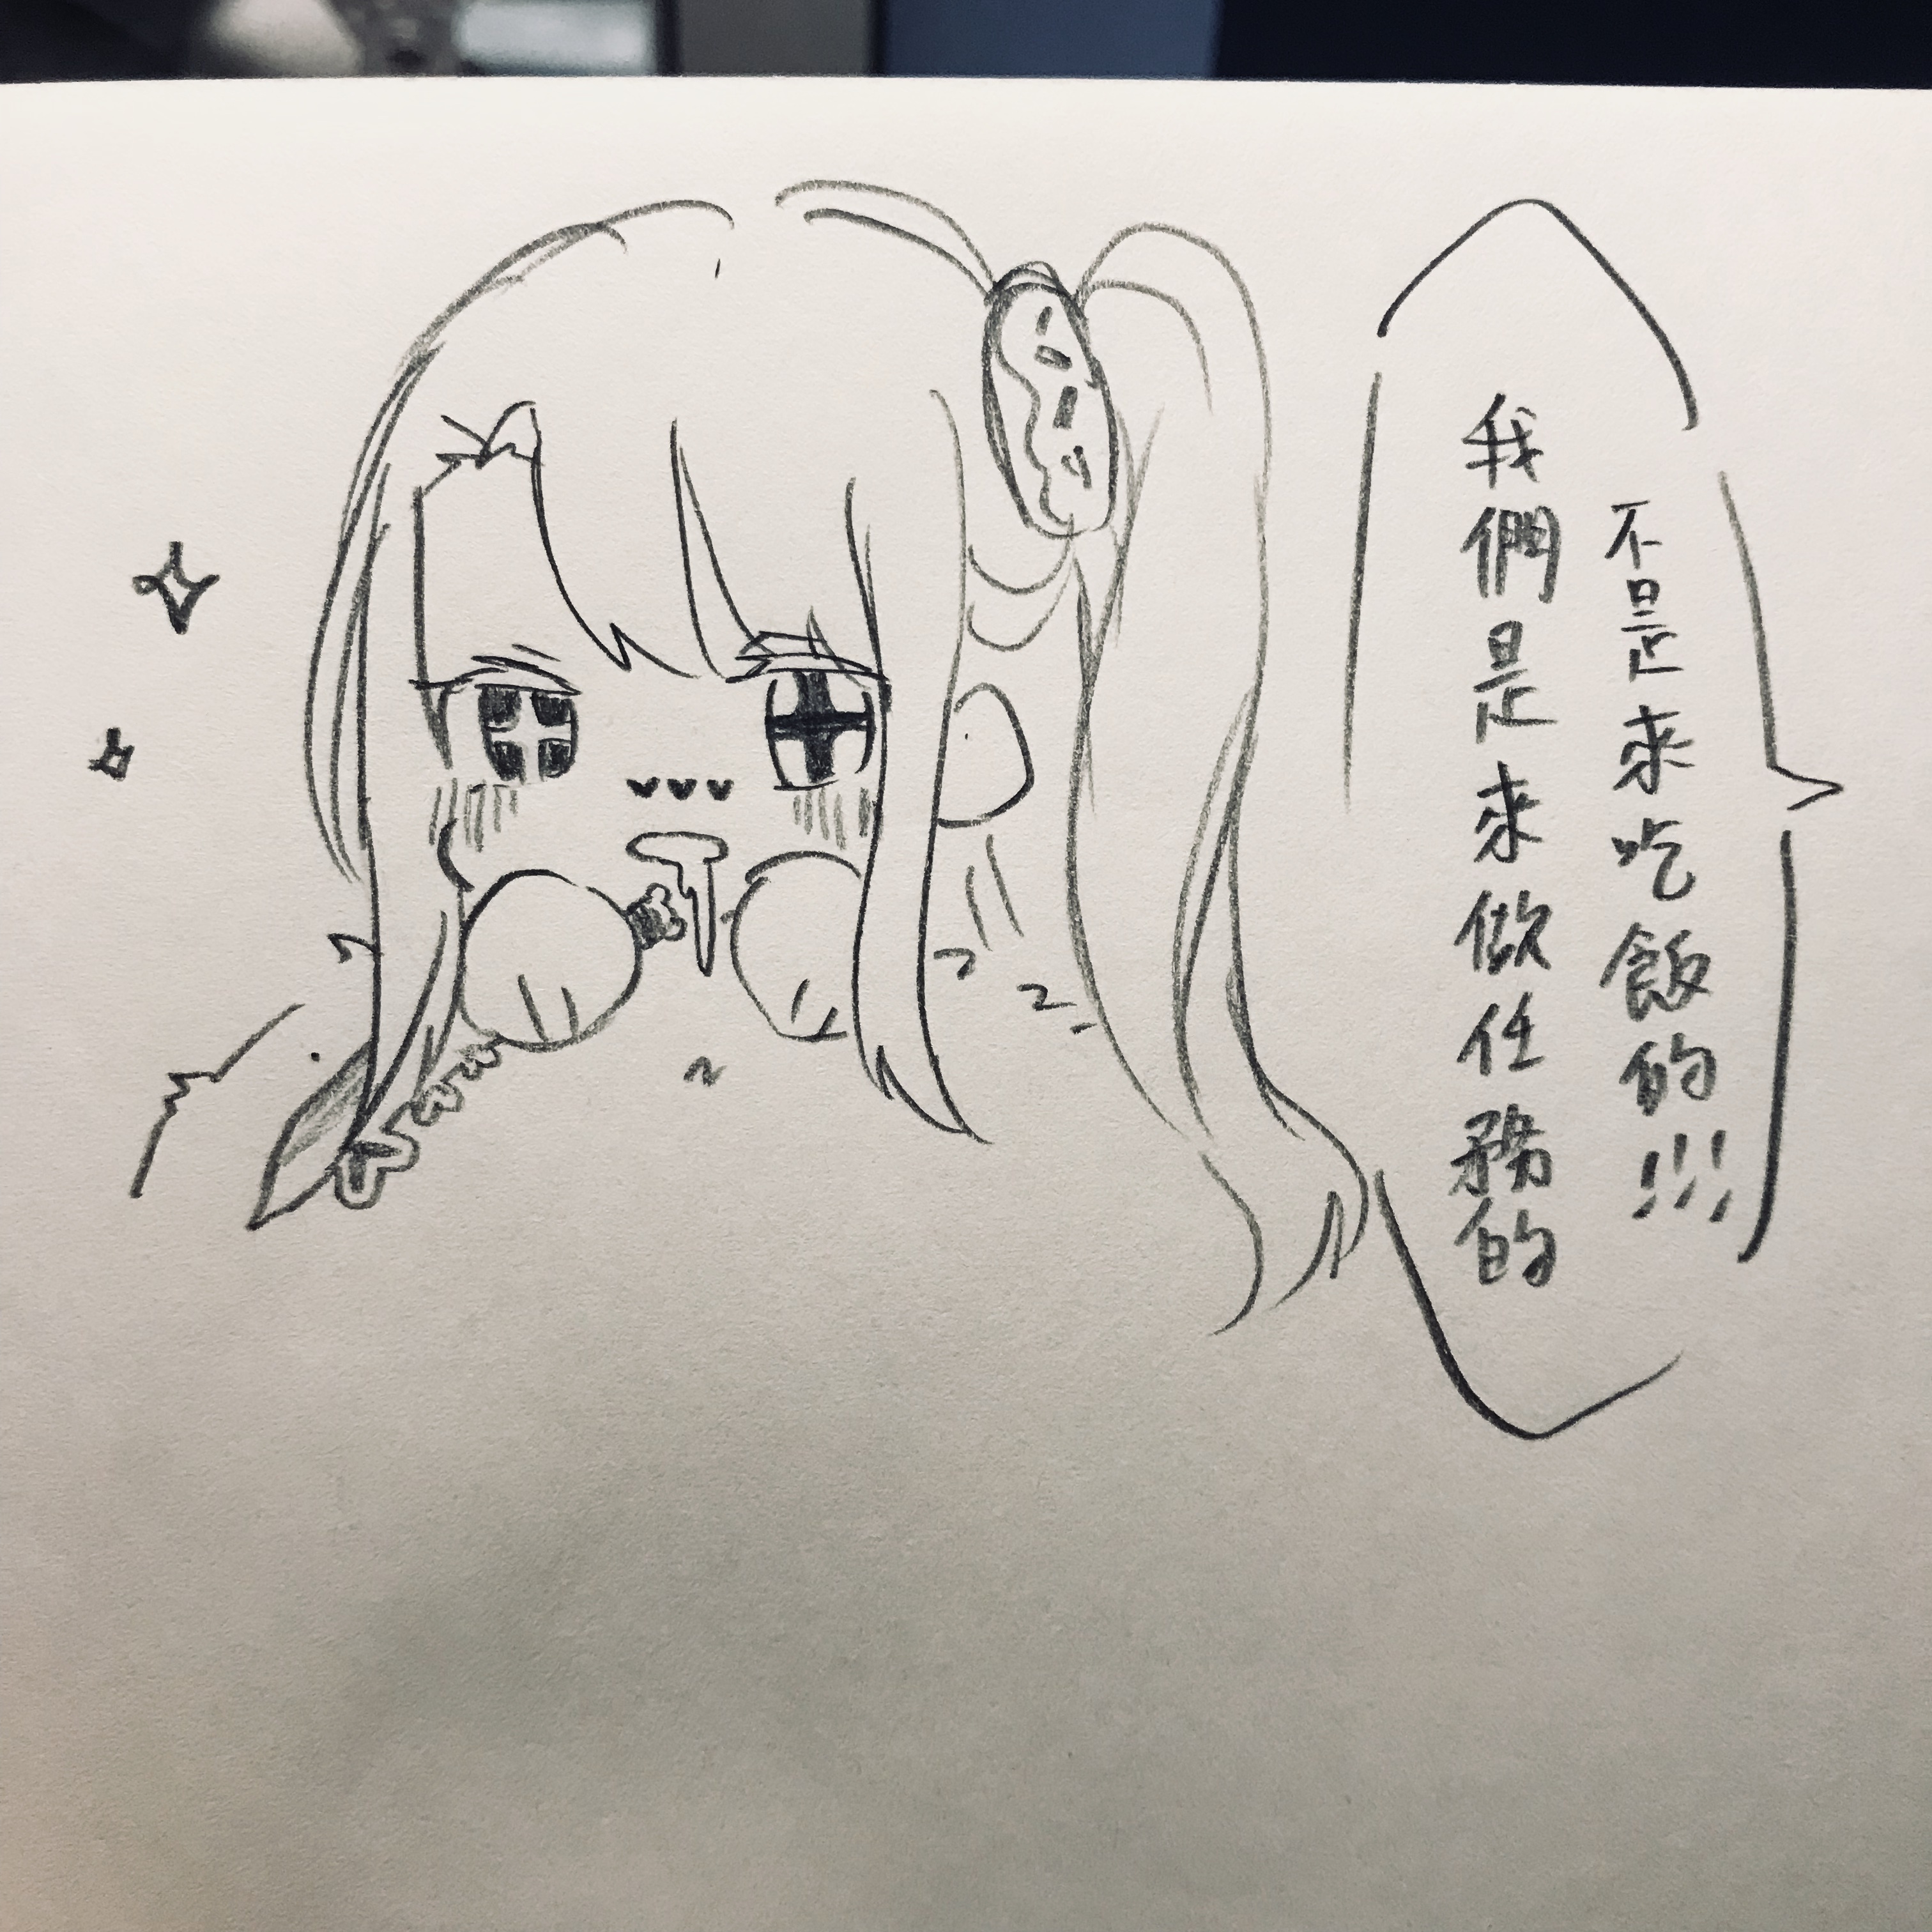 我們是來做任務的
不是來吃飯的!!!